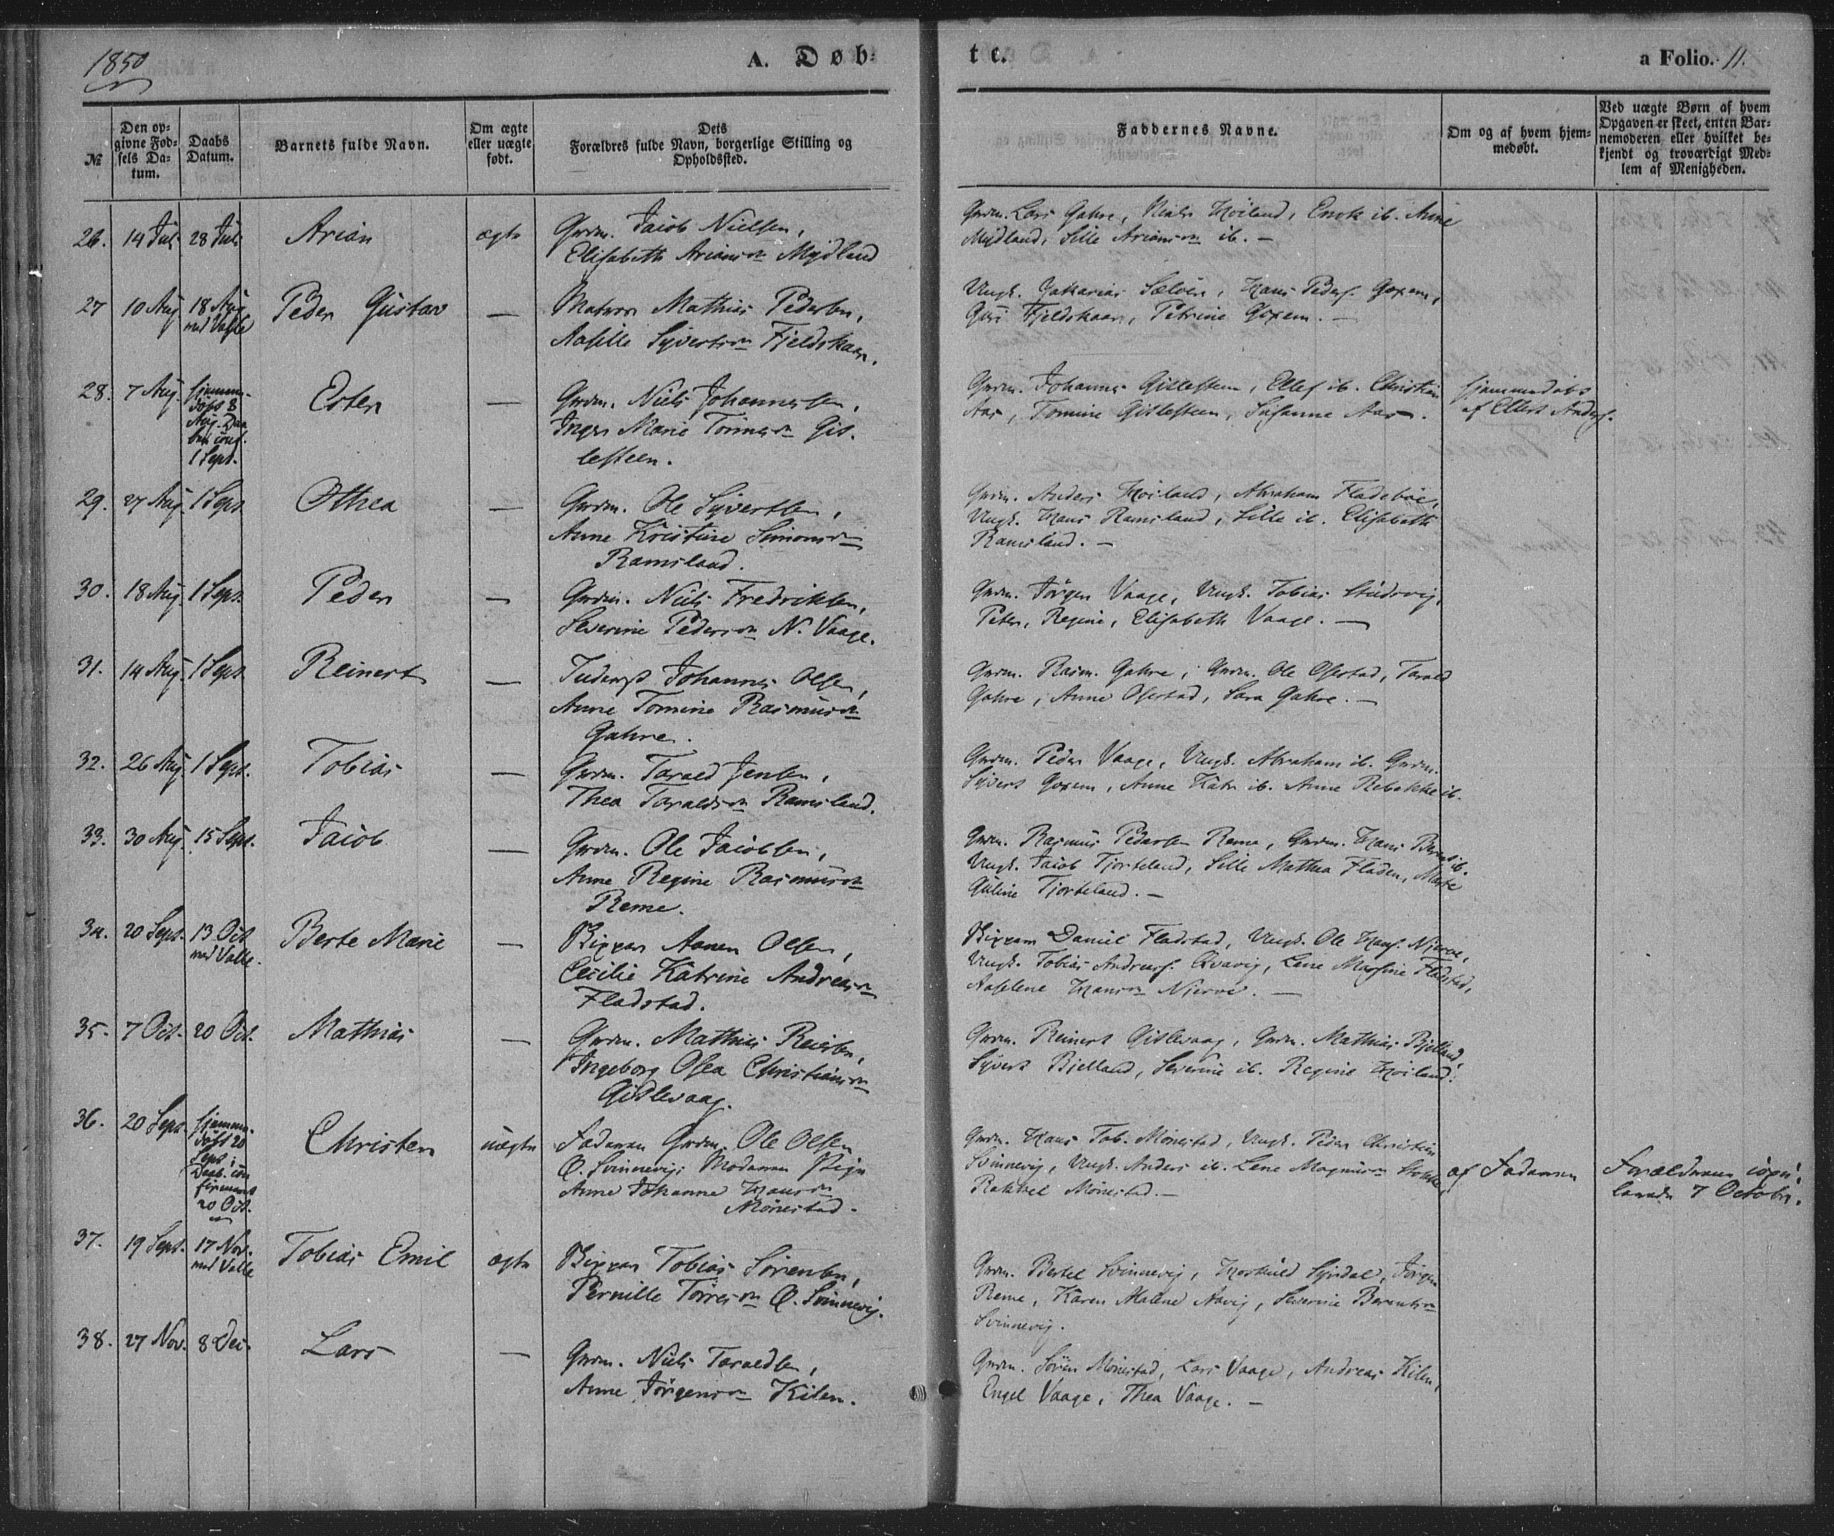 1850
A. Døb-
te.
a Folio. 11.
№
Den op-
givne Fød-
sels Da-
tum.
Daabs
Datum.
Barnets fulde Navn.
Om ægte
eller uægte
født.
Dets
Forældres fulde Navn, borgerlige Stilling og
Opholdssted.
Faddernes Navne.
Om og af hvem hjem-
medøbt.
Ved uægte Børn af hvem
Opgaven er skeet, enten Bar-
nemoderen eller hvilket be-
kjendt og troværdigt Med-
lem af Menigheden.
26. 14 Jul. 28 Jul. Arian ægte Grdm. Jacob Nielsen,
Elisabeth Ariansen Mydland
Grdm. Lars Gahre, Niels Høiland, Enok ib. Anne
Mydland, Sille Ariansen ib. —
27 10 Aug 18 Aug
ved Valle
Peder Gustav — Matros Mathias Pedersen,
Aasille Syvertsen Fjeldskaar.
Ungk. Zakarias Sælør, Hans Peders. Goxem,
Guri Fjeldskaar, Petrine Goxem. —
28. 7 Aug. Hjemme-
døbt 8
Aug. Daa-
ben conf.
1 Sept.
Esten — Grdm. Niels Johannesen,
Inger Marie Tomine Gis-
lesteen.
Grdm. Johannes Gislesteen, Ellef ib. Christian
Aas, Tomine Gislesteen, Susanne Aas.
Hjemmedøbt
af Ellert Anders.
29. 27 Aug. 1 Sept Othea — Grdm. Ole Syvertsen,
Anne Kristine Simonsen
Ramsland.
Grdm. Anders Høiland, Abraham Fladebøe,
Ungk. Hans Ramsland, Sille ib. Elisabeth
Ramsland. —
30. 18 Aug. 1 Sept. Peder — Grdm. Niels Fredriksen,
Severine Pedersen N. Vaage.
Grdm. Jørgen Vaage, Ungk. Tobias Studevig,
Peter, Regine, Elisabeth Vaage. —
31. 14 Aug 1 Sept Reinert — Inderst Johannes Olsen,
Anne Tomine Rasmusen
Gahre.
Grdm. Rasm. Gahre, Grdm. Ole Osestad, Tarald
Gahre, Anne Osestad, Sara Gahre. —
32. 26 Aug 1 Sept. Tobias — Grdm. Tarald Jensen,
Thea Taraldsen Ramsland.
Grdm. Peder Vaage, Ungk. Abraham ib. Grdm.
Syvert Goxem, Anne Katr. ib. Anne Rebekke ib.
33. 30 Aug 15 Sept. Jacob — Grdm. Ole Jacobsen,
Anne Regine Rasmusen
Reme.
Grdm. Rasmus Pedersen Reme, Grdm. Hans Berns. ib.
Ungk. Jacob Tjorteland, Sille Mathea Fladen, Marte
Guline Tjorteland. —
34. 20 Sept. 13 Oct
ved Valle.
Berte Marie — Skipper Aanen Olsen,
Cecilie Katrine Andreasn
Fladstad.
Skipperm Daniel Fladstad, Ungk. Ole Hans. Njerve,
Ungk. Tobias Andreas. Qvavig, Lene Marsine Fladstad,
Aaselene Hansen Njerve. —
35. 7 Oct. 20 Oct. Mathias — Grdm. Mathias Reiersen,
Ingeborg Osea Christiansen
Gislevaag.
Grdm. Reinert Gislevaag, Grdm. Mathias Bjelland,
Syvert Bjelland, Severine ib. Regine Høiland.
36. 20 Sept. Hjemme-
døbt 20
Sept;
Daab. con-
firmeret
20 Oct.
Christen uægte Faderen Grdm. Ole Olsen
Ø. Svinnevig; Moderen Pige
Anne Johanne Hansen
Mønestad.
Grdm. Hans Tob. Mønestad, Ungk. Peder Christian
Svinnevig, Ungk. Anders ib. Lene Magnusn
Rakkel Mønestad. —
af Faderen
Forældrene
7 October.
37. 19 Sept. 17 Nov.
ved Valle
Tobias Emil ægte Skipper Tobias Sørensen,
Pernille Torresen Ø. Svinnevig.
Grdm. Bertel Svinnevig, Hoskuld Syrdal, Jørgen
Reme, Karen Malene Aavig, Severine Berentsen
Svinnevig.
38. 27 Nov. 8 Dec. Lars — Grdm. Niels Taraldsen,
Anne Jørgensen Kilen.
Grdm. Søren Mønestad, Lars Vaage, Andreas Kilen,
Engel Vaage, Thea Vaage. —